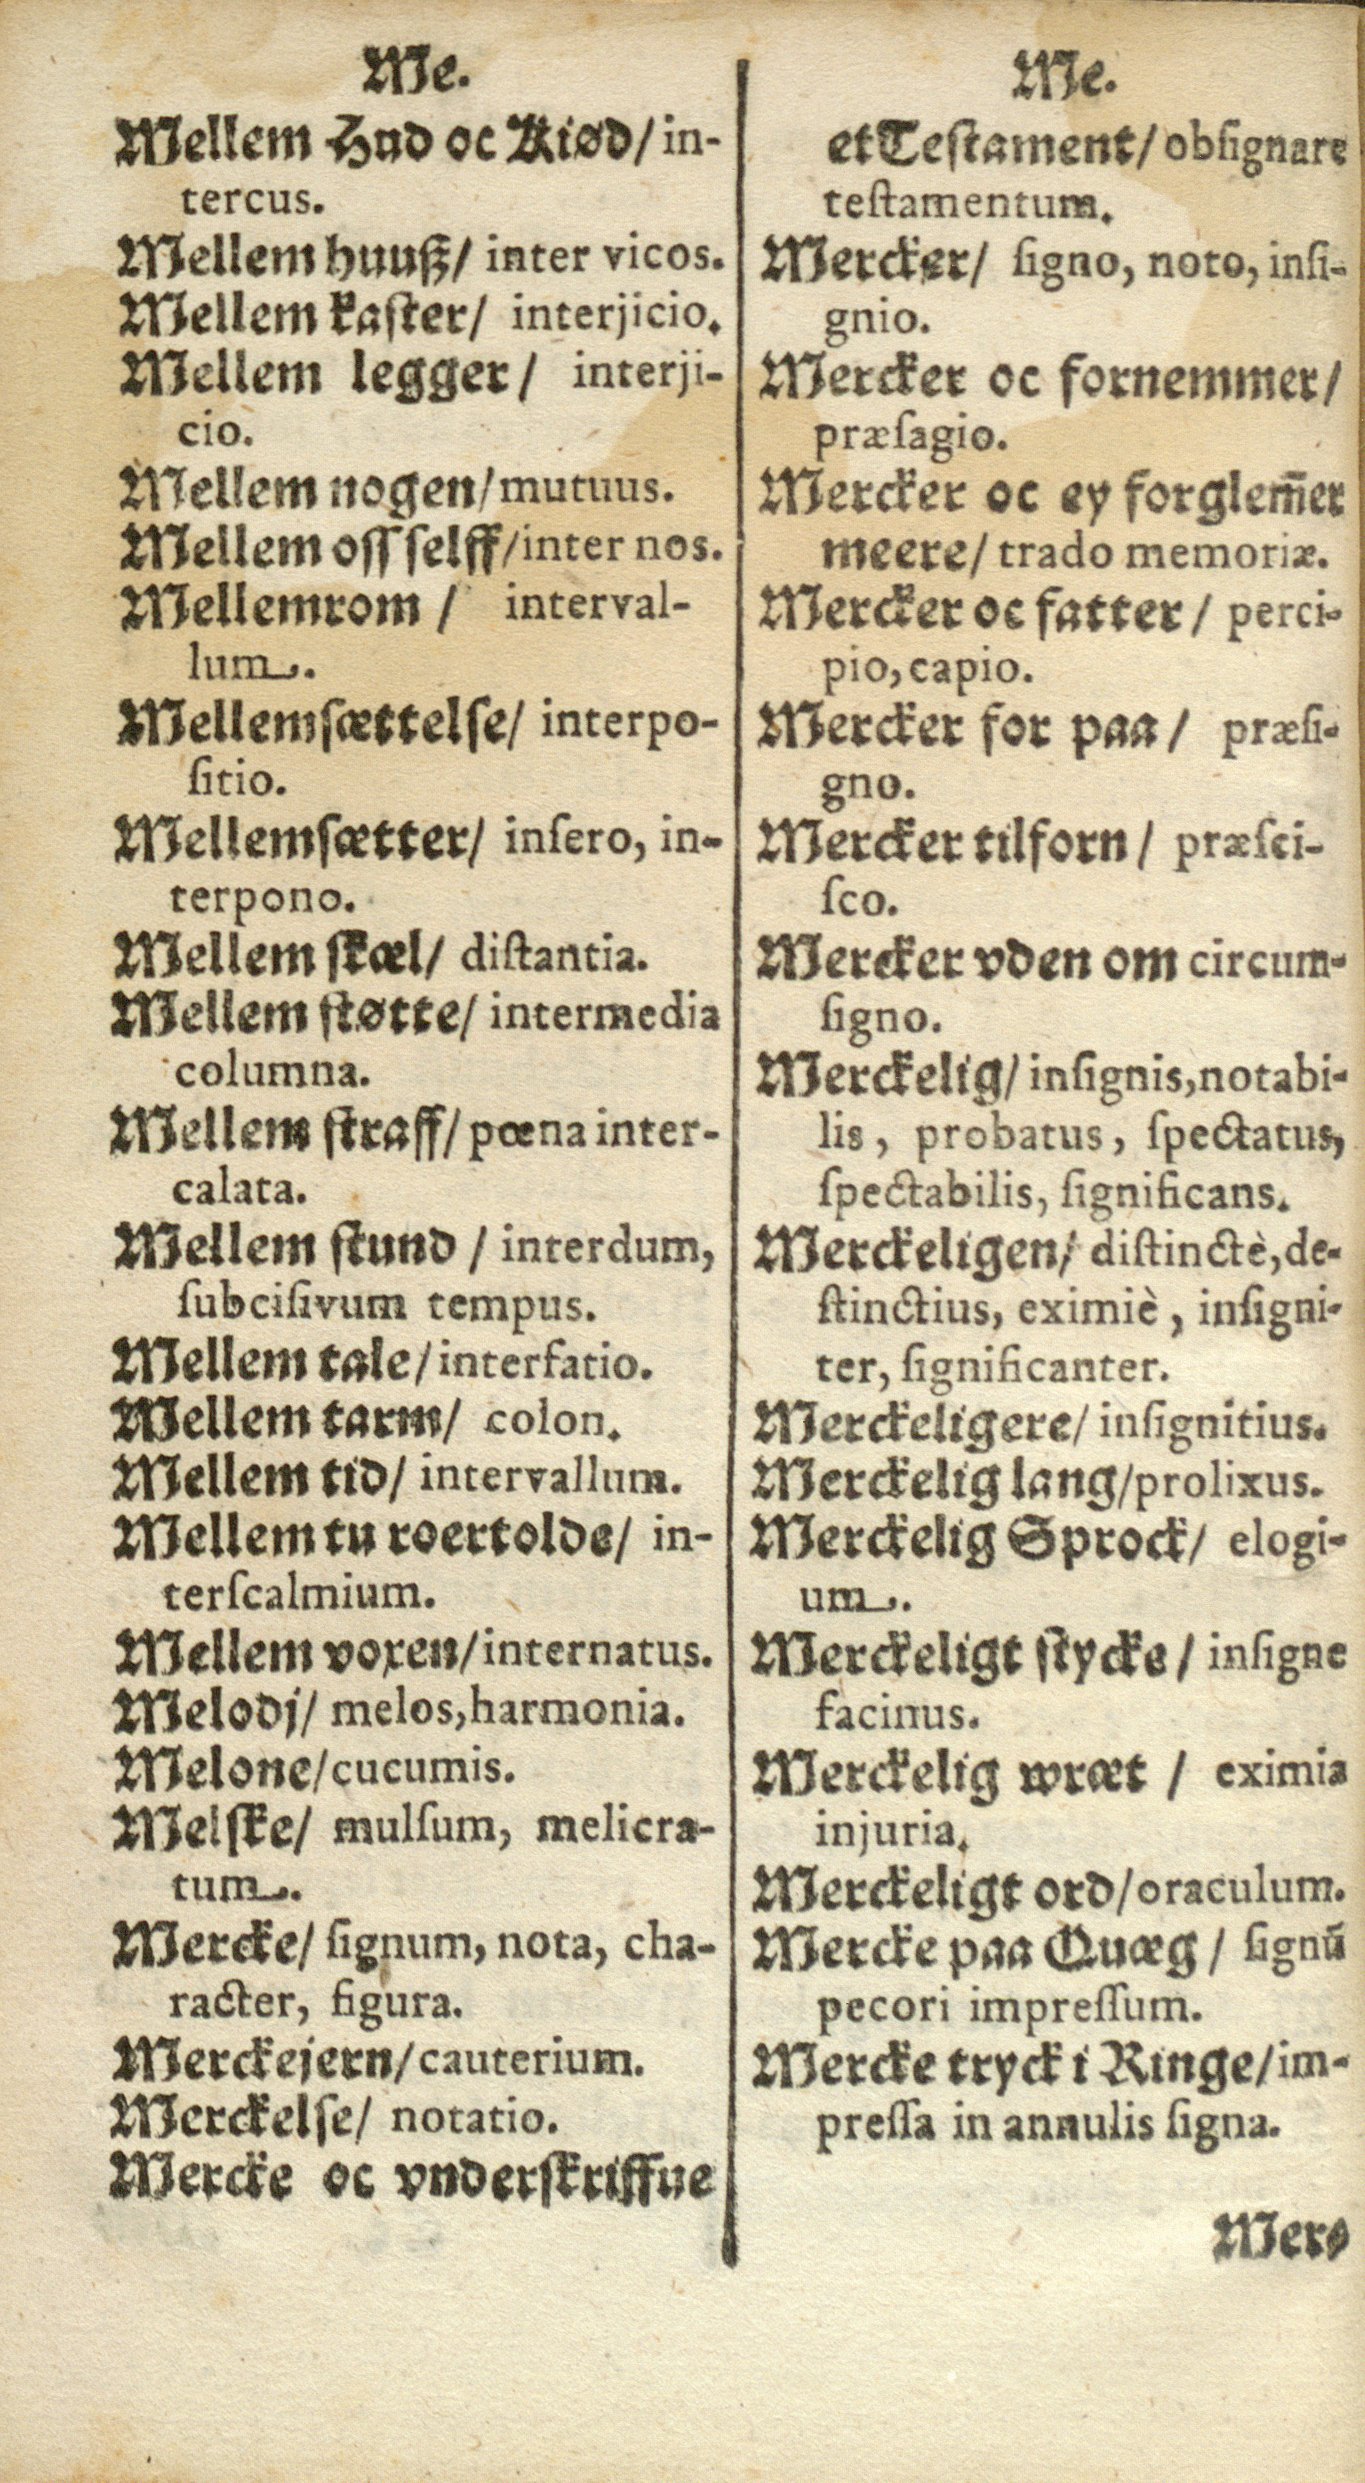 Me.
Mellem Hud oc Kiød/ in-
tercus.
Mellem huuß/ inter vicos.
Mellem kaſter/ interjicio.
Mellem legger/ interji-
cio.
Mellem nogen/ mutuus.
Mellem oſſ ſelff/ inter nos.
Mellemrom / interval-
lum.
Mellemſættelſe/ interpo-
ſitio.
Mellemſætter/ inſero, in-
terpono.
Mellem ſkæl/ diſtantia.
Mellem ſtøtte/ intermedia
columna.
Mellem ſtraff/ pœna inter-
calata.
Mellem ſtund / interdum,
ſubciſivum tempus.
Mellem tale/ interfatio.
Mellem tarm/ colon.
Mellem tid/ intervallum.
Mellem tu roertolde/ in-
terſcalmium.
Mellem voxen/ internatus.
Melodj/ melos, harmonia.
Melone/ cucumis.
Melſke/ mulſum, melicra-
tum.
Mercke/ ſignum, nota, cha-
racter, figura.
Merckejern/ cauterium.
Merckelſe/ notatio.
Mercke oc vnderſkriffue
Me.
et Teſtament/ obſignare
teſtamentum.
Mercker/ ſigno, noto, inſi-
gnio.
Mercker oc fornemmer/
præſagio.
Mercker oc ey forglem̃er
meere/ trado memoriæ.
Mercker oc fatter / perci-
pio, capio.
Mercker for paa / præſi-
gno.
Mercker tilforn / præſci-
ſco.
Mercker vden om circum-
ſigno.
Merckelig/ inſignis, notabi-
lis, probatus, ſpectatus,
ſpectabilis, ſignificans.
Merckeligen/ diſtinctè, de-
ſtinctius, eximiè, inſigni-
ter, ſignificanter.
Merckeligere/ inſignitius.
Merckelig lang/ prolixus.
Merckelig Sprock/ elogi-
um.
Merckeligt ſtycke / inſigne
facinus.
Merckelig wræt / eximia
injuria.
Merckeligt ord/ oraculum.
Mercke paa Quæg / ſignū
pecori impreſſum.
Mercke tryck i Ringe/ im-
preſſa in annulis ſigna.
Mer-